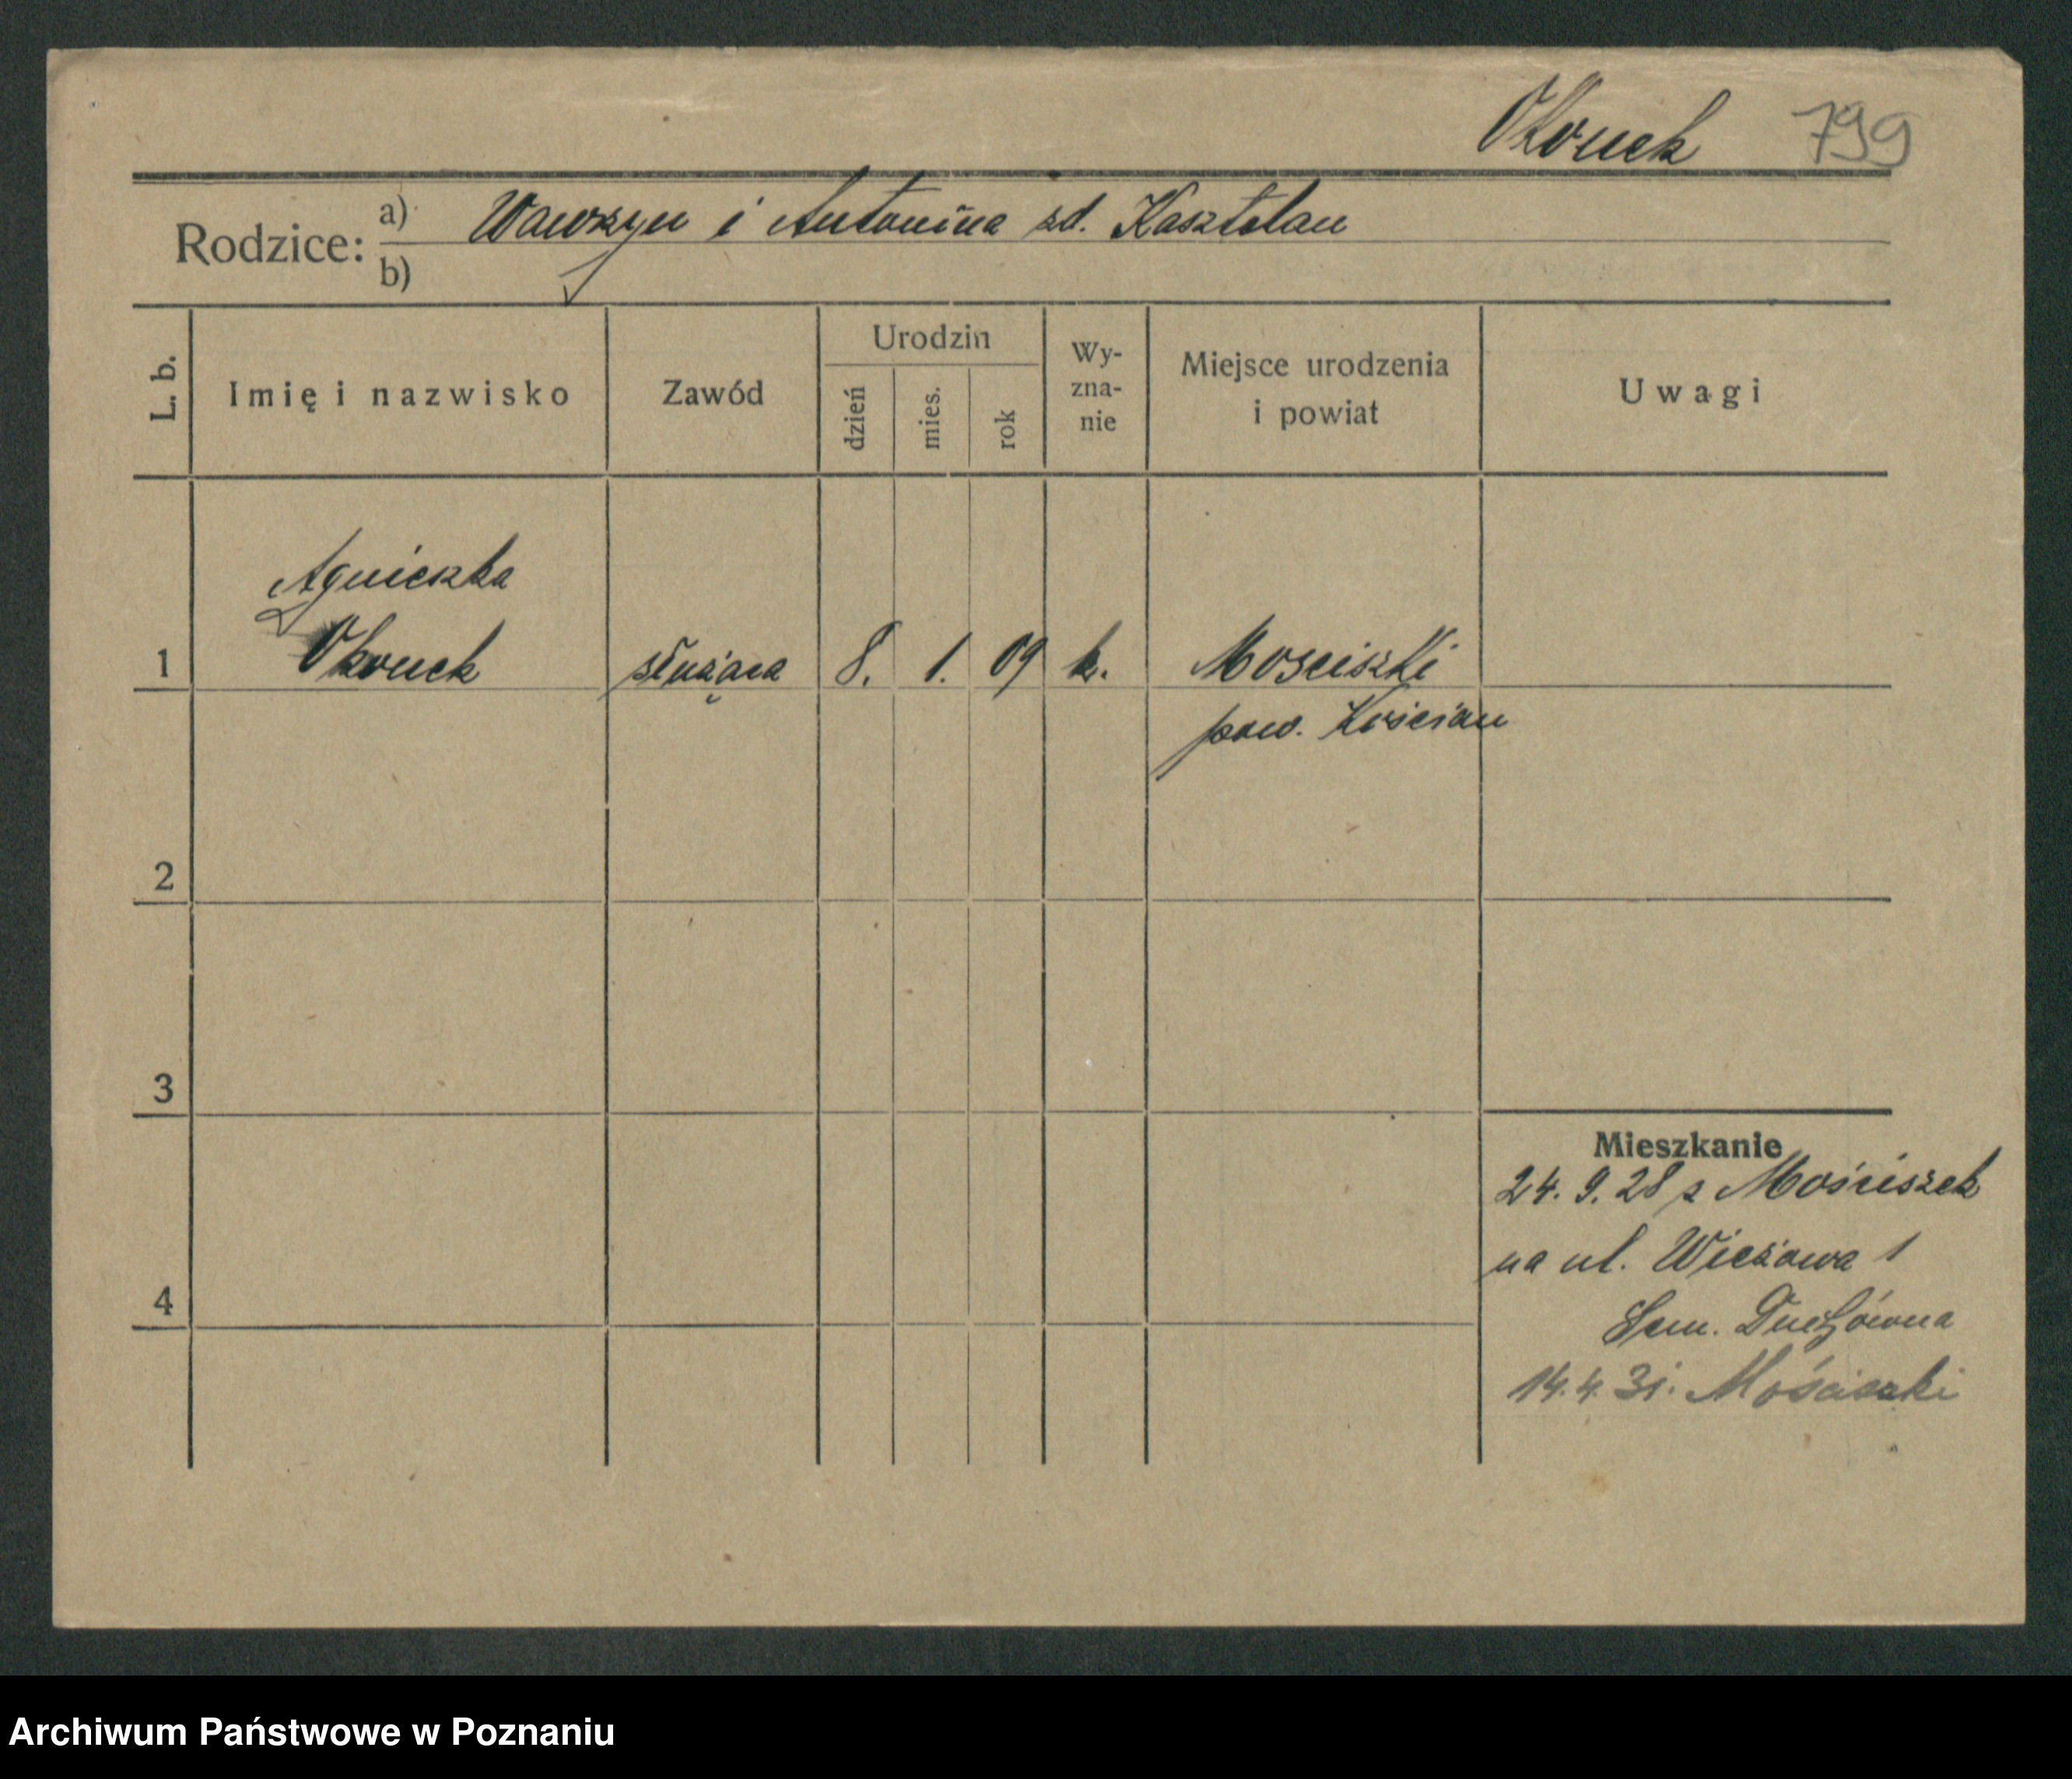 Okonek 799
Rodzice: a) Wawrzyn i Antonina zd. Kasztelan
b)
L. b. Imię i nazwisko Zawód Urodzin dzień mies. rok Wy-zna-nie Miejsce urodzenia i powiat Uwagi
Agnieszka
1 Okonek służąca 8. 1. 09 k. Mosciszki
pow. Kościan
2
3
Mieszkanie
24. 9. 28 z Mościszek
na ul. Wieżowa 1
4
Sem. Duchówna
14. 4. 31. Mościszki
Archiwum Państwowe w Poznaniu